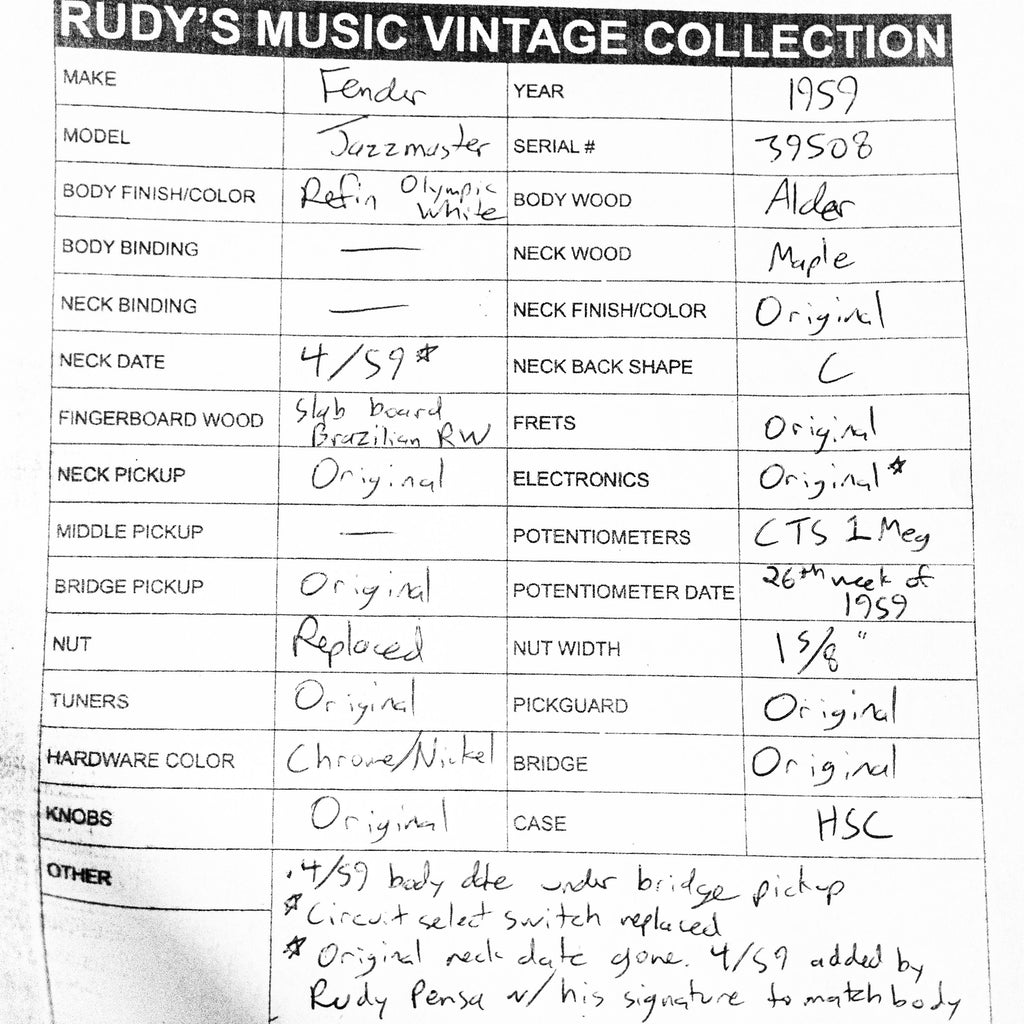 RUDY'S MUSIC VINTAGE COLLECTION
MAKE Fender YEAR 1959
MODEL Jazzmaster SERIAL # 39508
BODY FINISH/COLOR Refin Olympic White BODY WOOD Alder
BODY BINDING — NECK WOOD Maple
NECK BINDING — NECK FINISH/COLOR Original
NECK DATE 4/59* NECK BACK SHAPE C
FINGERBOARD WOOD Slab board Brazilian RW FRETS Original
NECK PICKUP Original ELECTRONICS Original*
MIDDLE PICKUP — POTENTIOMETERS CTS 1 Meg
BRIDGE PICKUP Original POTENTIOMETER DATE 26th week of 1959
NUT Replaced NUT WIDTH 1 5/8"
TUNERS Original PICKGUARD Original
HARDWARE COLOR Chrome/Nickel BRIDGE Original
KNOBS Original CASE HSC
OTHER · 4/59 body date under bridge pickup
* Circuit select switch replaced
* Original neck date gone. 4/59 added by
Rudy Pensa w/ his signature to match body